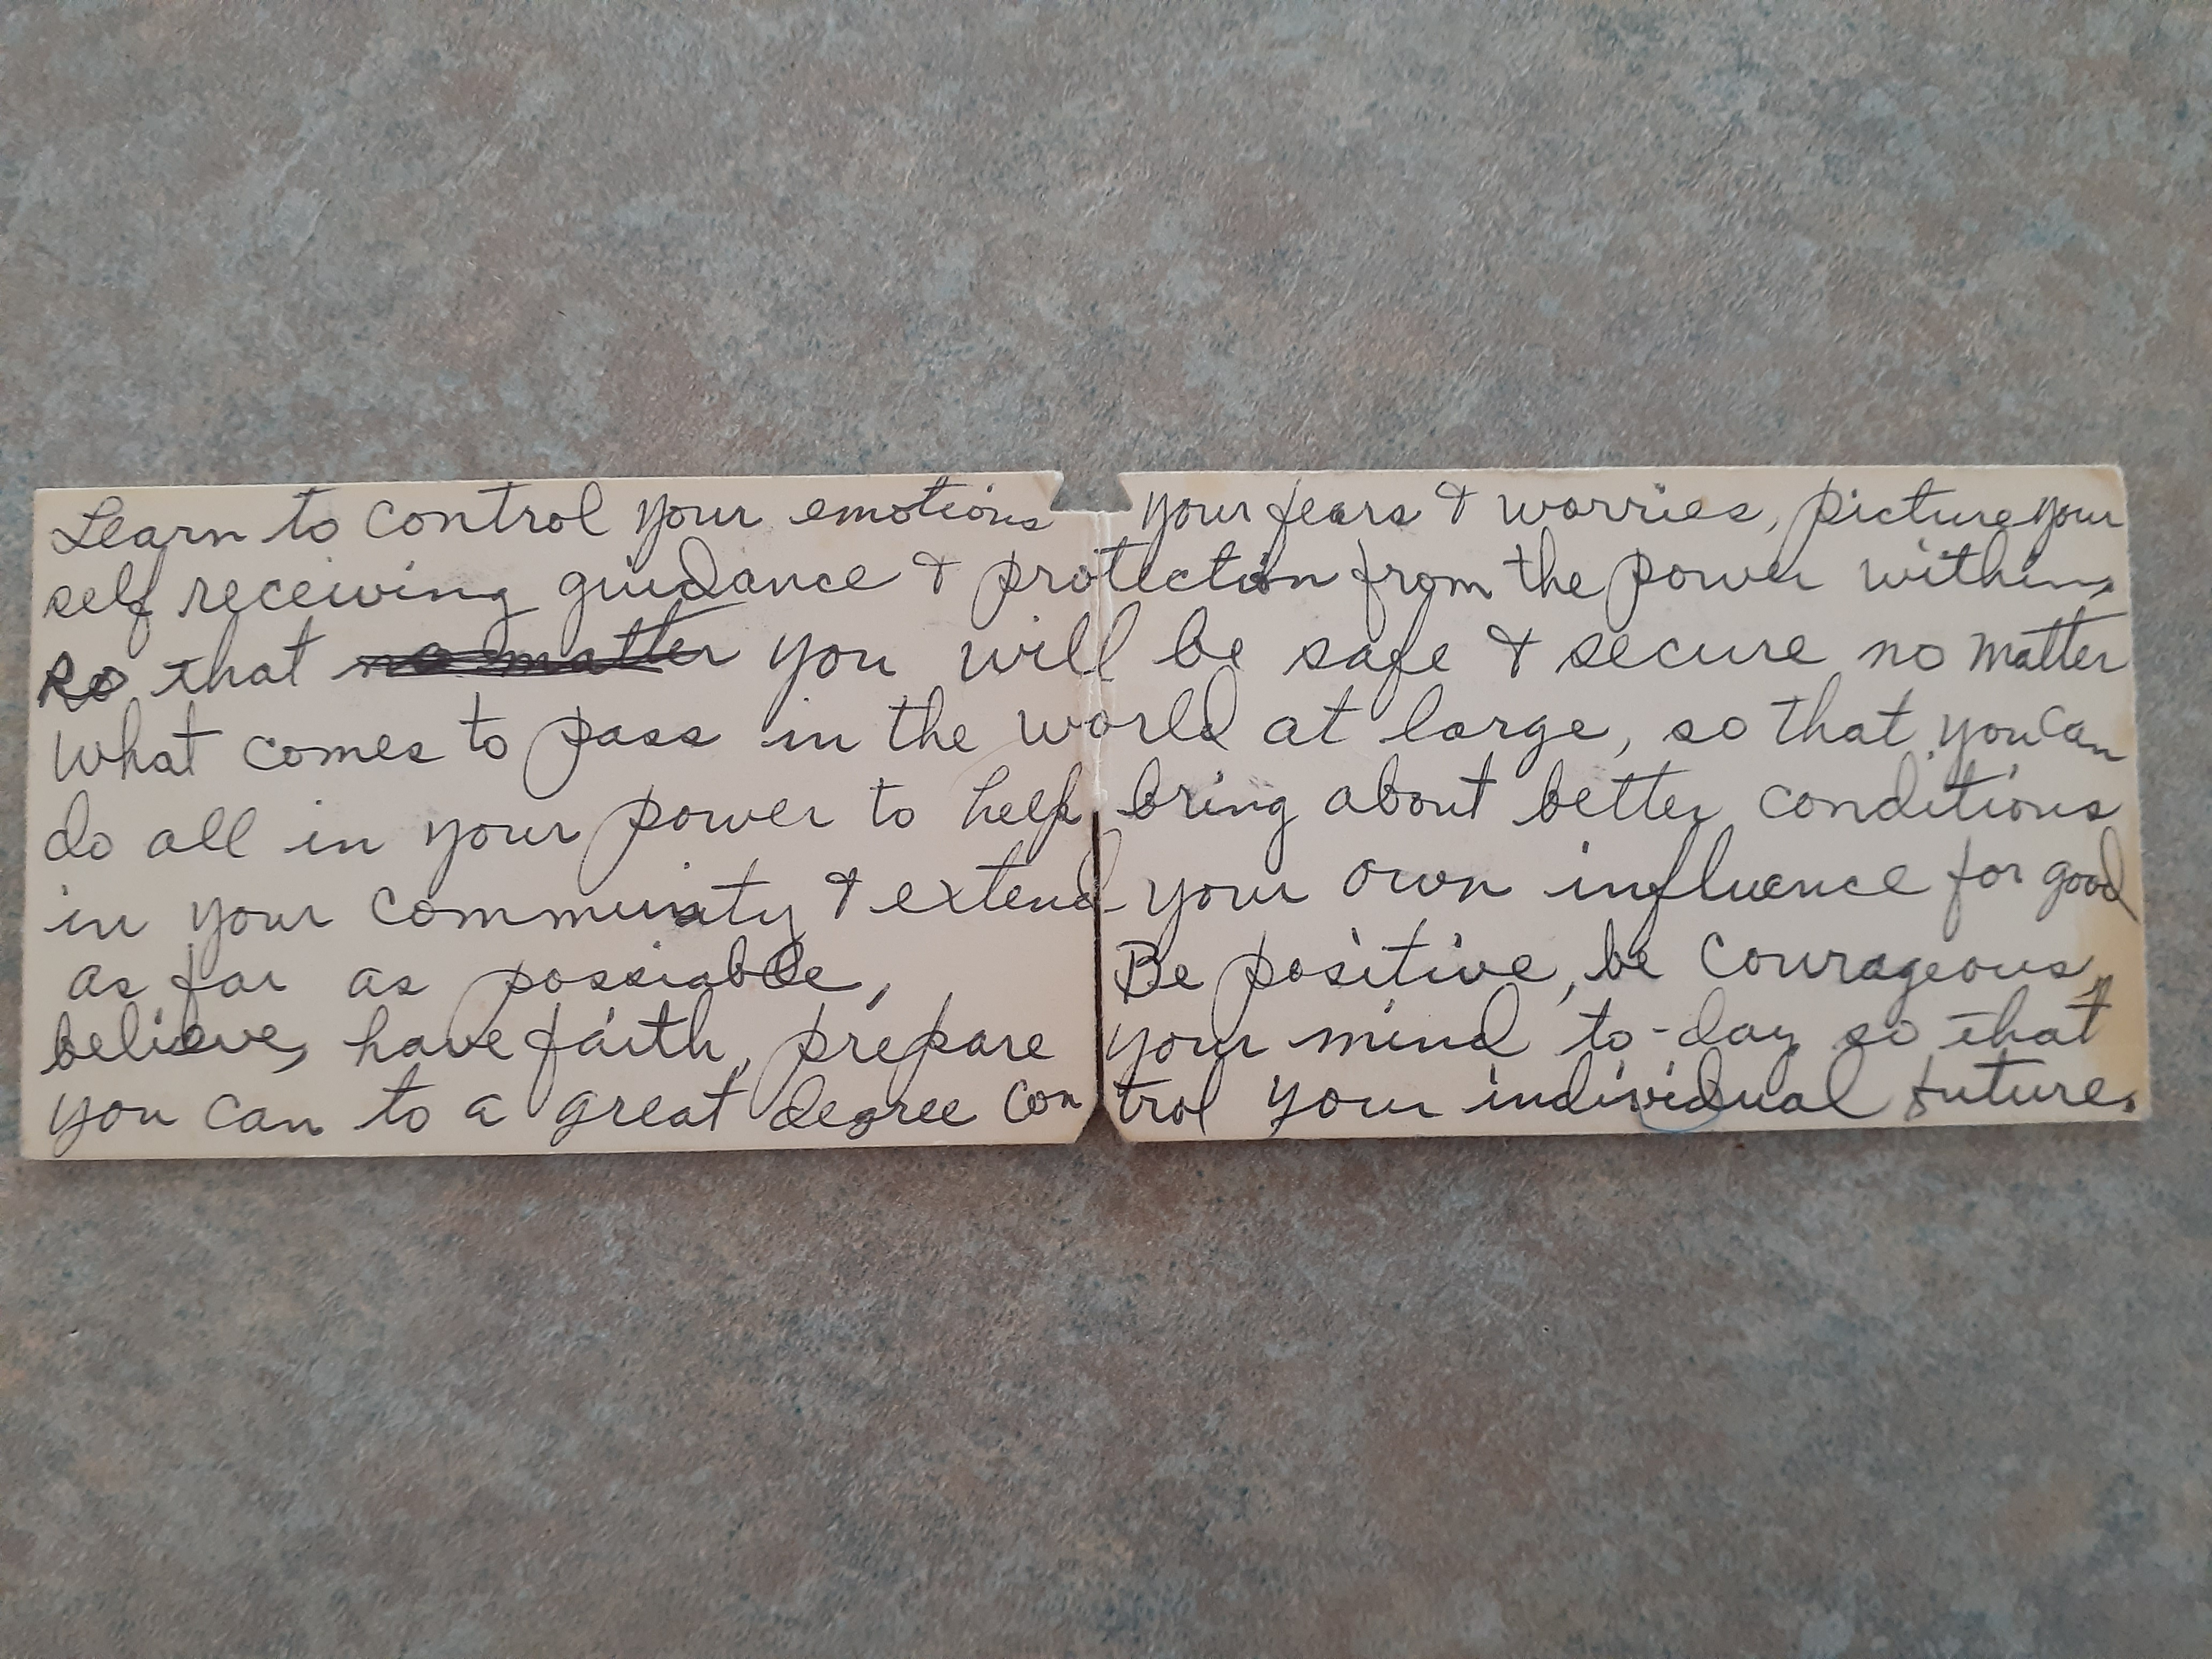 Learn to control your emotions your fears & worries, picture your
self receiving guidance & protection from the power within,
so that no matter you will be safe & secure no matter
What comes to pass in the world at large, so that you can
do all in your power to help bring about better conditions
in your community & extend your own influence for good
as far as possiable, Be positive, be courageous,
believe, have faith, prepare your mind to-day so that
you can to a great degree control your individual future.